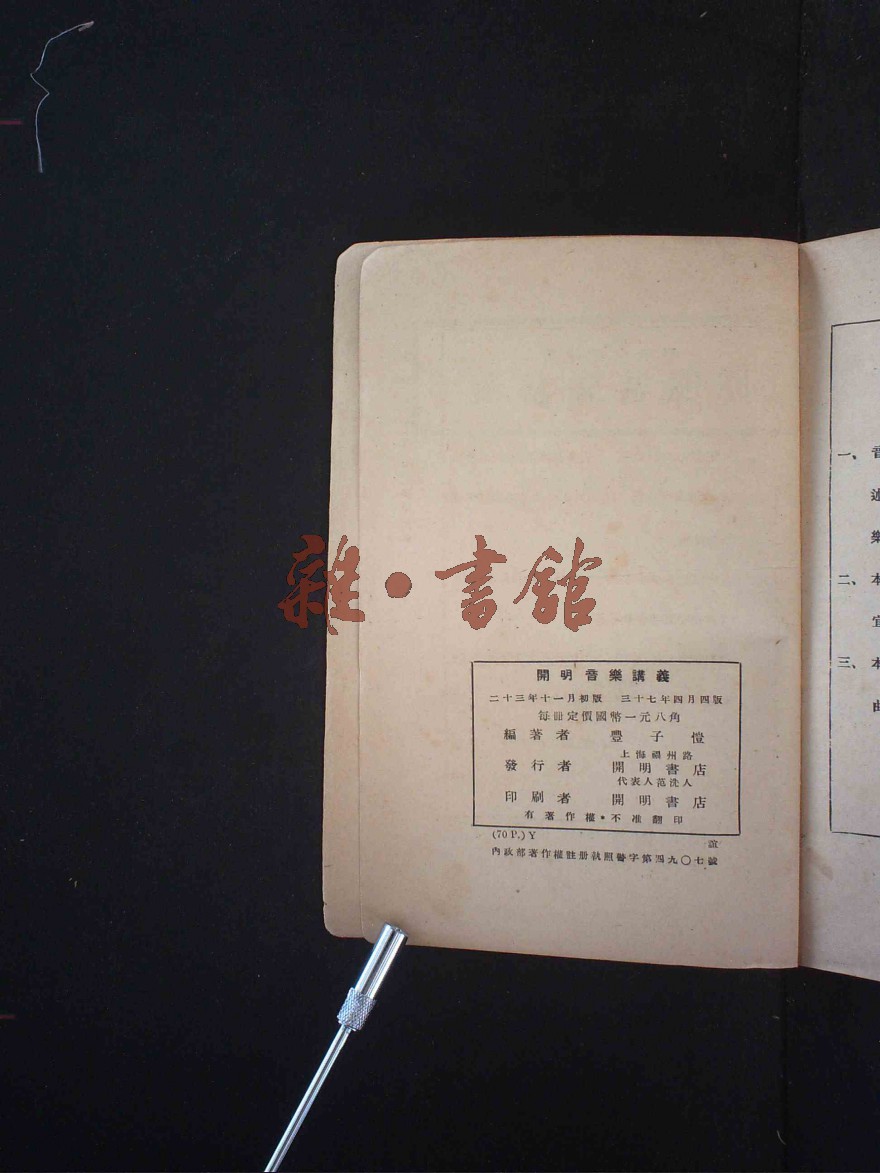 雜·書館
開明音樂講義
二十三年十一月初版　三十七年四月四版
每冊定價國幣一元八角
編著者　豐子愷
上海福州路
發行者　開明書店
代表人范洗人
印刷者　開明書店
有著作權·不准翻印
(70 P.) Y
誼
內政部著作權註册執照警字第四九〇七號
一、音
樂
二、本
宣
三、本
曲